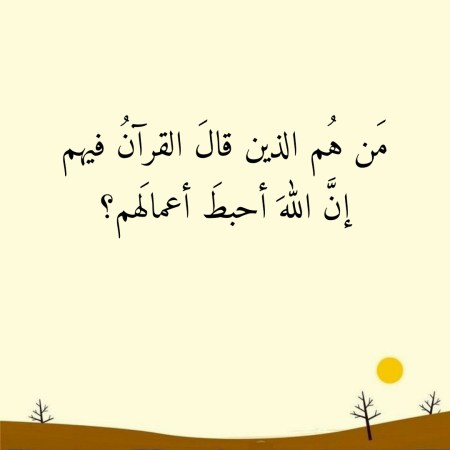 مَن هُم الذين قالَ القرآنُ فيهم
إنَّ اللهَ أحبطَ أعمالَهم؟